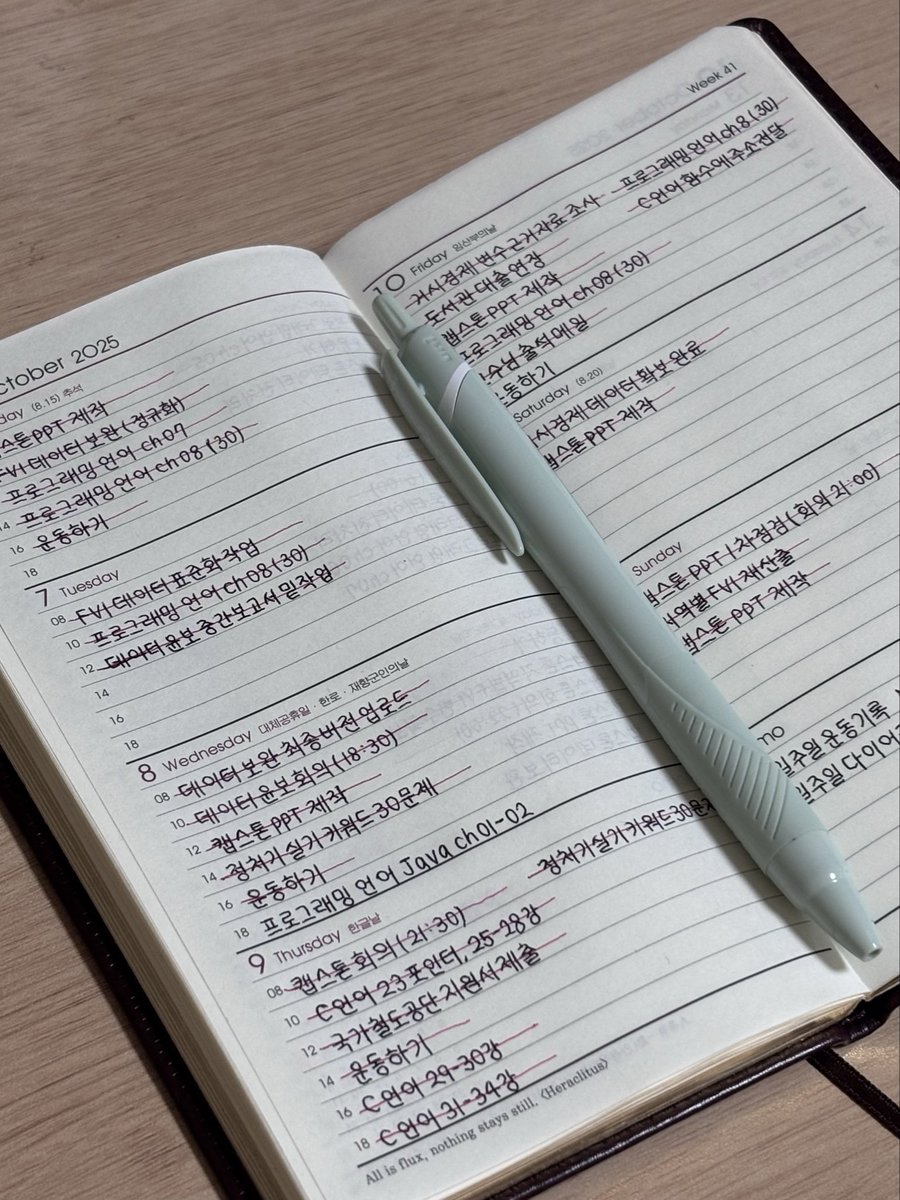 October 2025
(8.15) 추석
PPT 제작
FVI 데이터 보완 (정규화)
프로그래밍 언어 ch 07
14 프로그래밍 언어 ch 08 (30)
16 운동하기
18
7 Tuesday
08 FVI 데이터 표준화 작업
10 프로그래밍 언어 ch 08 (30)
12 데이터 윤보 중간보고서 밑작업
14
16
18
8 Wednesday 대체공휴일 · 한로 · 재향군인의날
08 데이터 보완 최종버전 업로드
10 데이터 윤보 회의 (18:30)
12 캡스톤 PPT 제작
14 정처기 실기 키워드 30문제
16 운동하기
18 프로그래밍 언어 Java ch01-02
정처기 실기 키워드 30문제
9 Thursday 한글날
08 캡스톤 회의 (21:30)
10 C언어 23 포인터, 25-28강
12 국가철도공단 지원서 제출
14 운동하기
16 C언어 29-30강
18 C언어 31-34강
All is flux, nothing stays still. 〈Heraclitus〉
Week 41
프로그래밍 언어 ch 8 (30)
C언어 함수에 주소전달
10 Friday 임산부의날
거시경제 변수 근거자료 조사
도서관 대출 연장
캡스톤 PPT 제작
프로그래밍 언어 ch08 (30)
출석 메일
운동하기
Saturday (8.20)
거시경제 데이터 확보 완료
캡스톤 PPT 제작
Sunday
캡스톤 PPT 1차 점검 (회의 21:00)
지역별 FVI 재산출
캡스톤 PPT 제작
일주일 운동기록
일주일 다이어